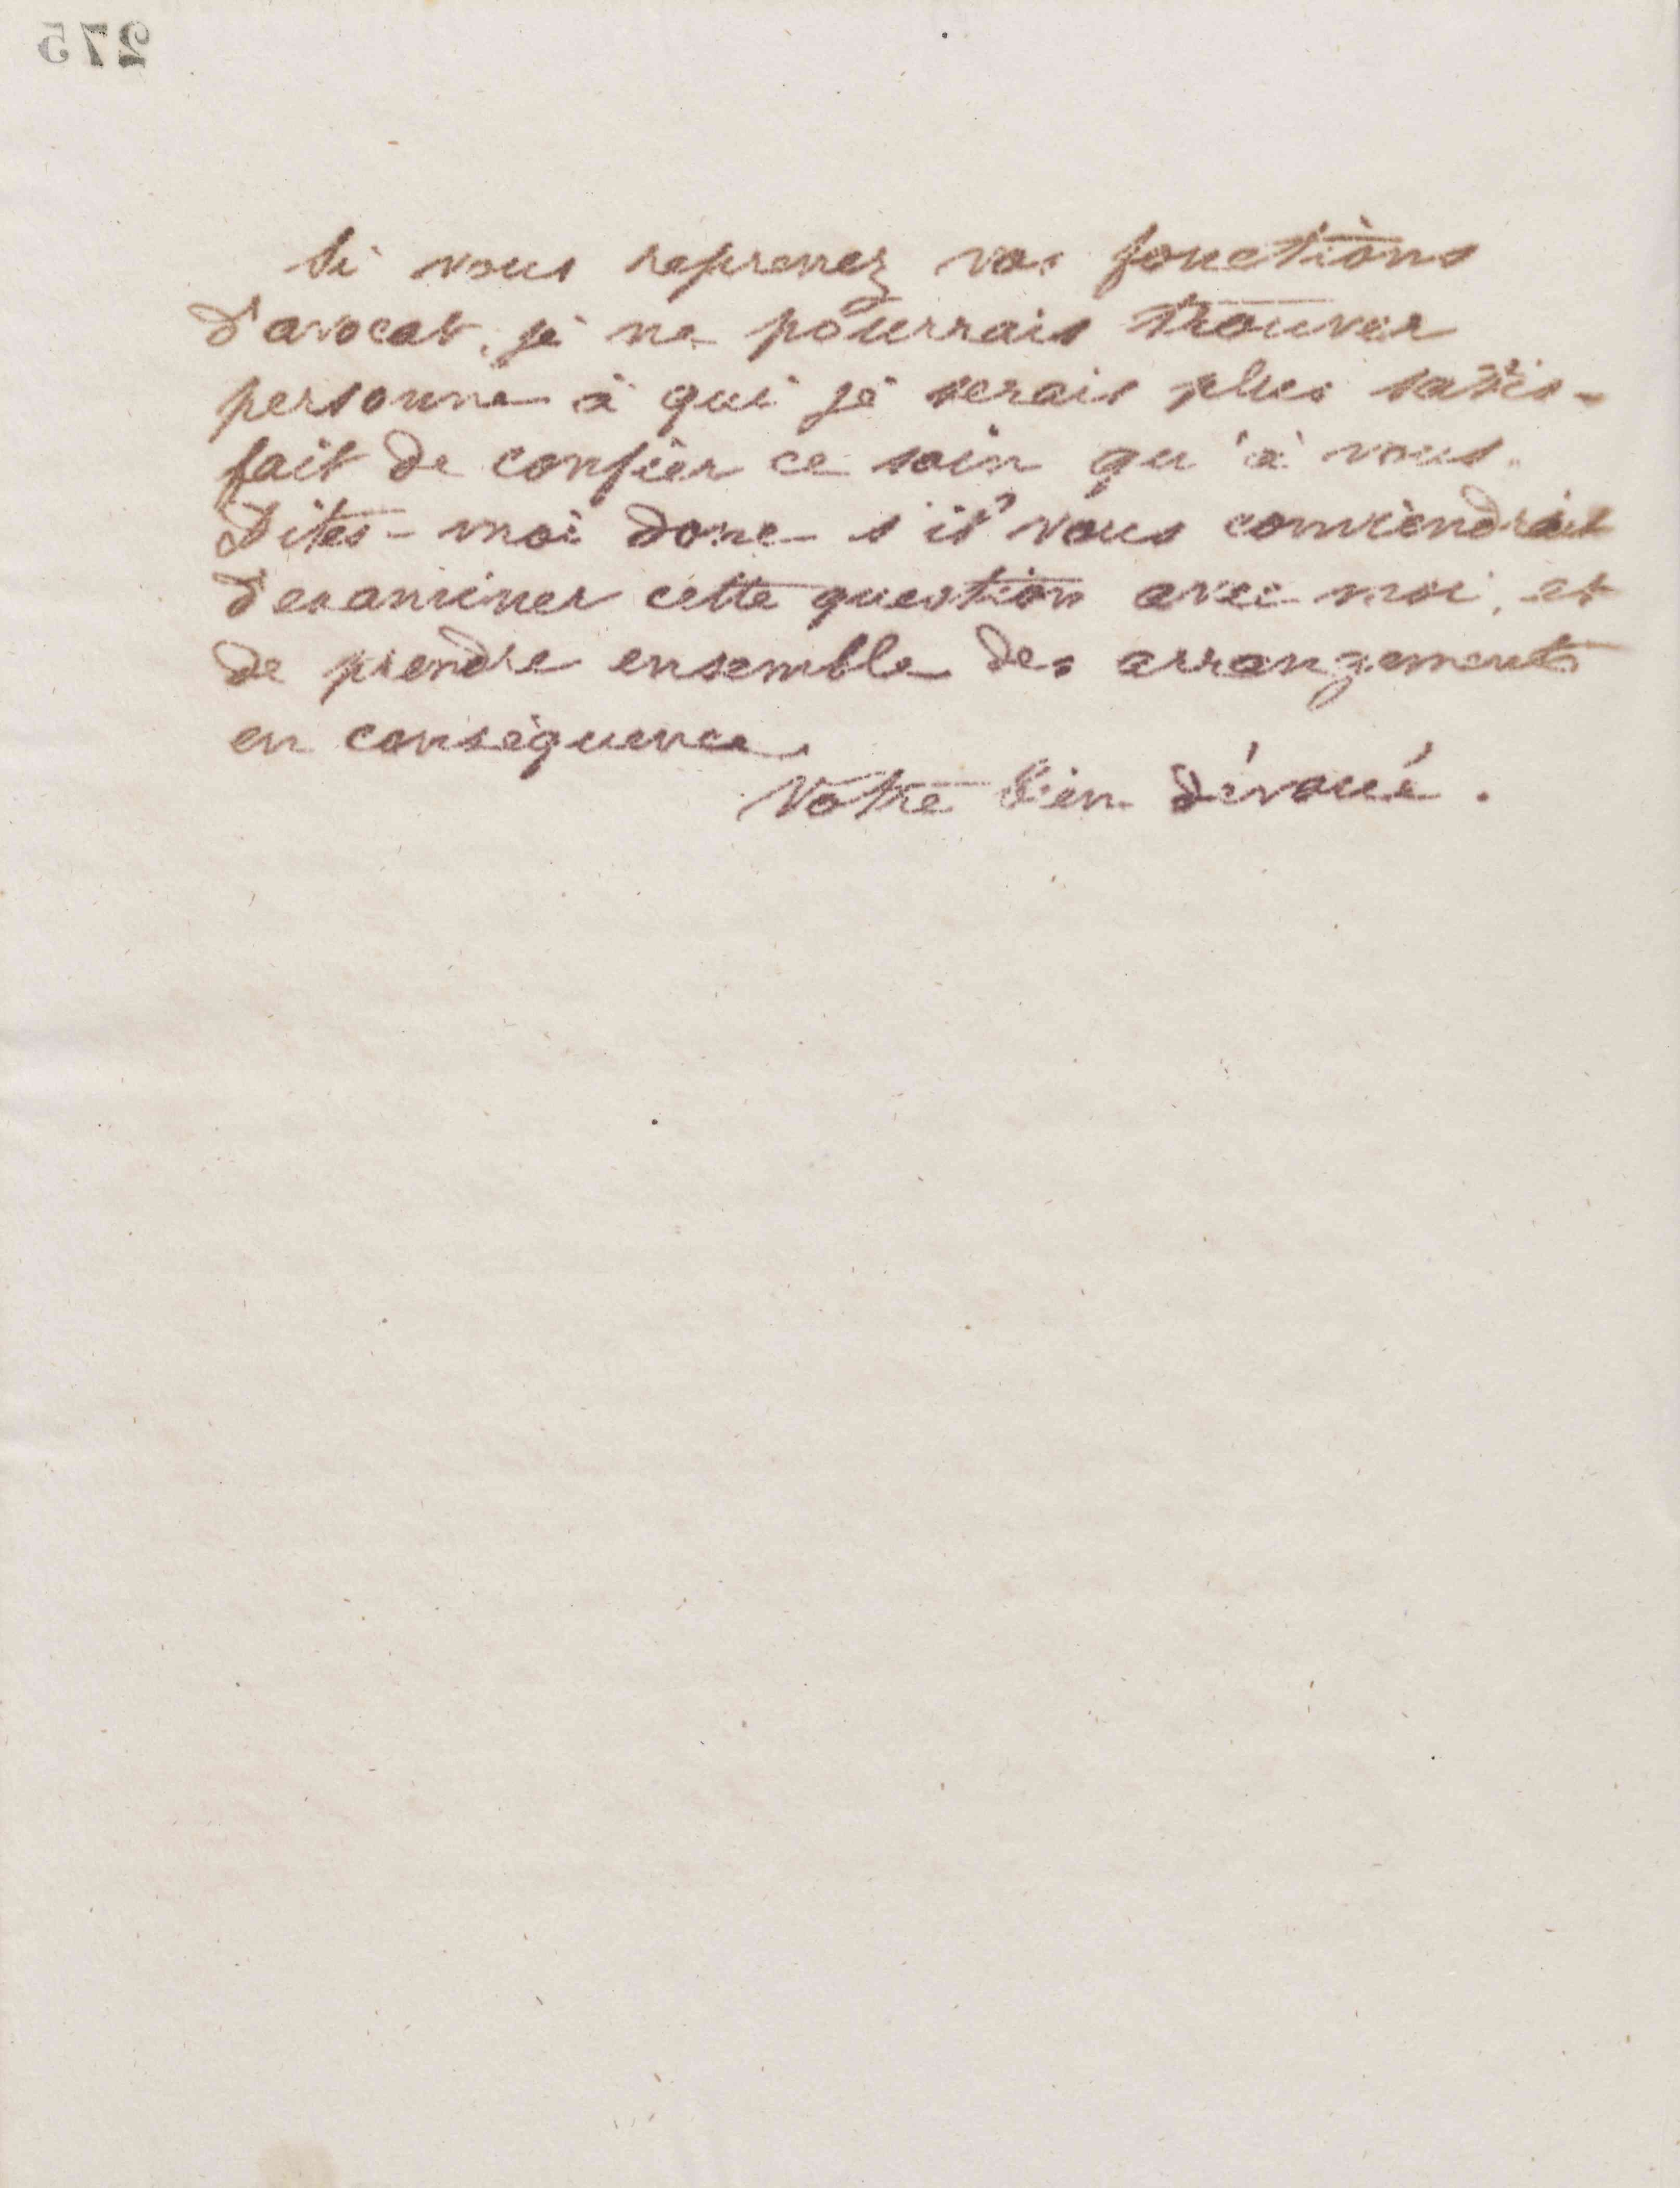 275
Si vous reprenez vos fonctions
d'avocat, je ne pourrais trouver
personne à qui je serais plus satis-
fait de confier ce soin qu'à vous.
Dites-moi donc s'il vous conviendrait
d'examiner cette question avec moi, et
de prendre ensemble des arrangements
en conséquence.
Votre bien dévoué.